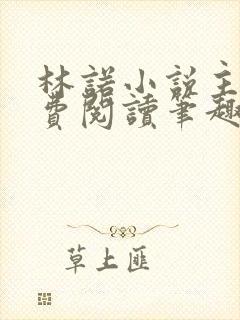 林諾小說主
費閱讀筆趣
草上匪